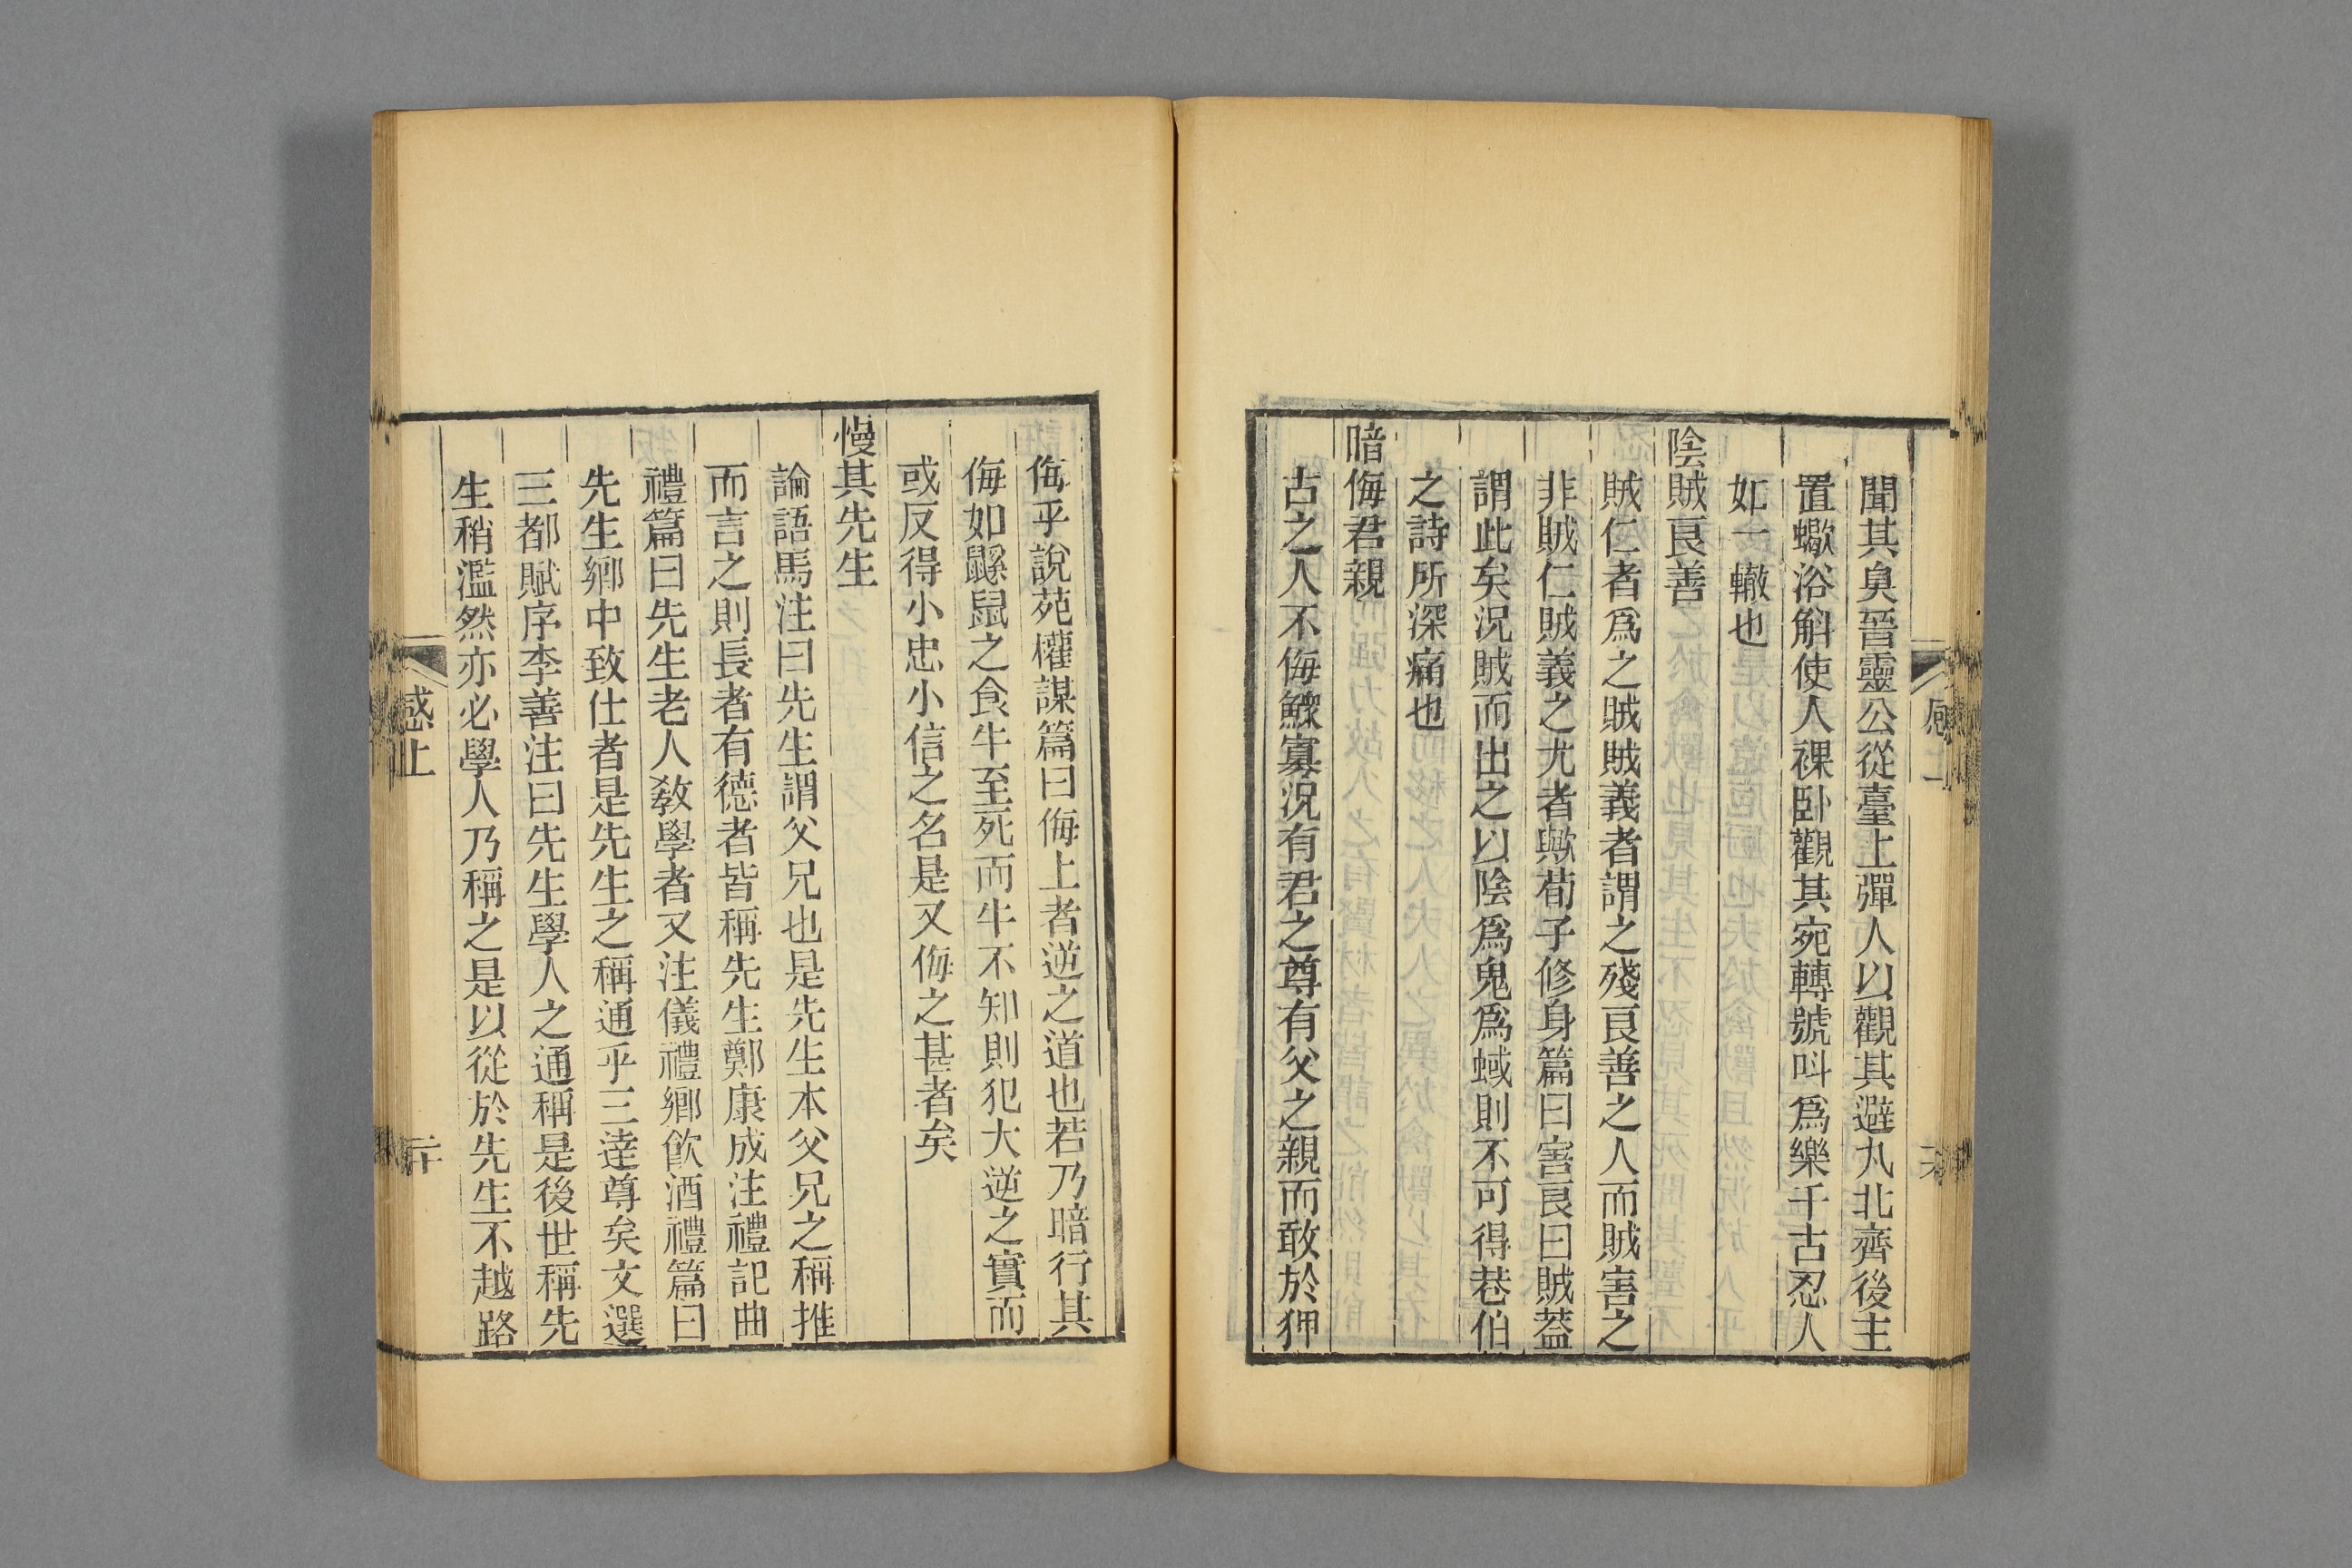 聞其臭晉靈公從臺上彈人以觀其避丸北齊後主
置蠍浴斛使人裸卧觀其宛轉號呌爲樂千古忍人
如一轍也
陰賊良善
賊仁者爲之賊賊義者謂之殘良善之人而賊害之
非賊仁賊義之尤者歟荀子修身篇曰害良曰賊葢
謂此矣況賊而出之以陰爲鬼爲蜮則不可得巷伯
之詩所深痛也
暗侮君親
古之人不侮鰥寡況有君之尊有父之親而敢於狎
侮乎說苑權謀篇曰侮上者逆之道也若乃暗行其
侮如鼷鼠之食牛至死而牛不知則犯大逆之實而
或反得小忠小信之名是又侮之甚者矣
慢其先生
論語馬注曰先生謂父兄也是先生本父兄之稱推
而言之則長者有德者皆稱先生鄭康成注禮記曲
禮篇曰先生老人敎學者又注儀禮鄉飮酒禮篇曰
先生鄉中致仕者是先生之稱通乎三逹尊矣文選
三都賦序李善注曰先生學人之通稱是後世稱先
生稍濫然亦必學人乃稱之是以從於先生不越路
感上
二十